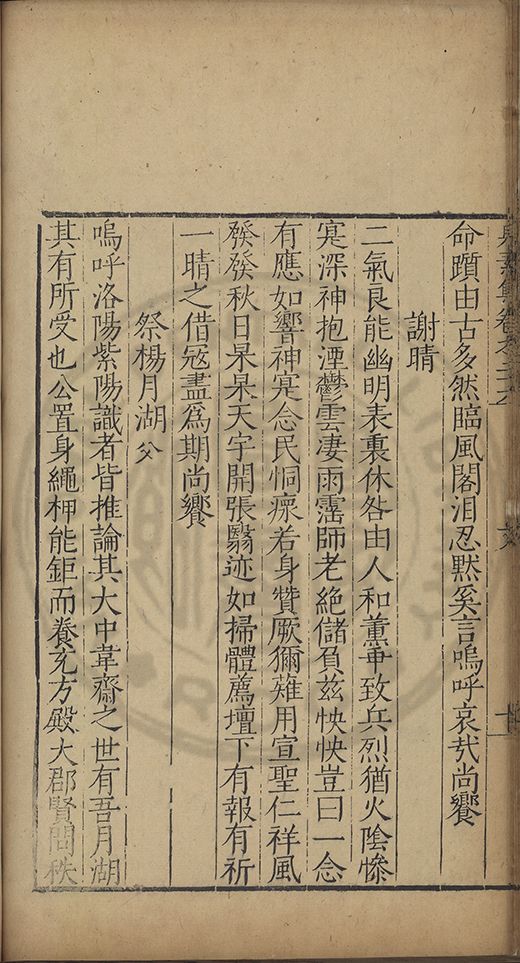 命躓由古多然臨風閣泪忍默奚言嗚呼哀㢤尚饗
謝晴
二氣良能幽明表裏休咎由人和薰乖致兵烈猶火隂慘
寔深神抱湮鬱雲凄雨霪師老絶儲負茲怏怏豈曰一念
有應如響神寔念民恫瘝若身贊厥獮薙用宣聖仁祥風
發發秋日杲杲天宇開張翳迹如掃體薦壇下有報有祈
一晴之借宼盡爲期尚饗
祭楊月湖公
嗚呼洛陽紫陽識者皆推論其大中韋齋之世有吾月湖
其有所受也公置身繩柙能鉅而養充方殿大郡賢問秩